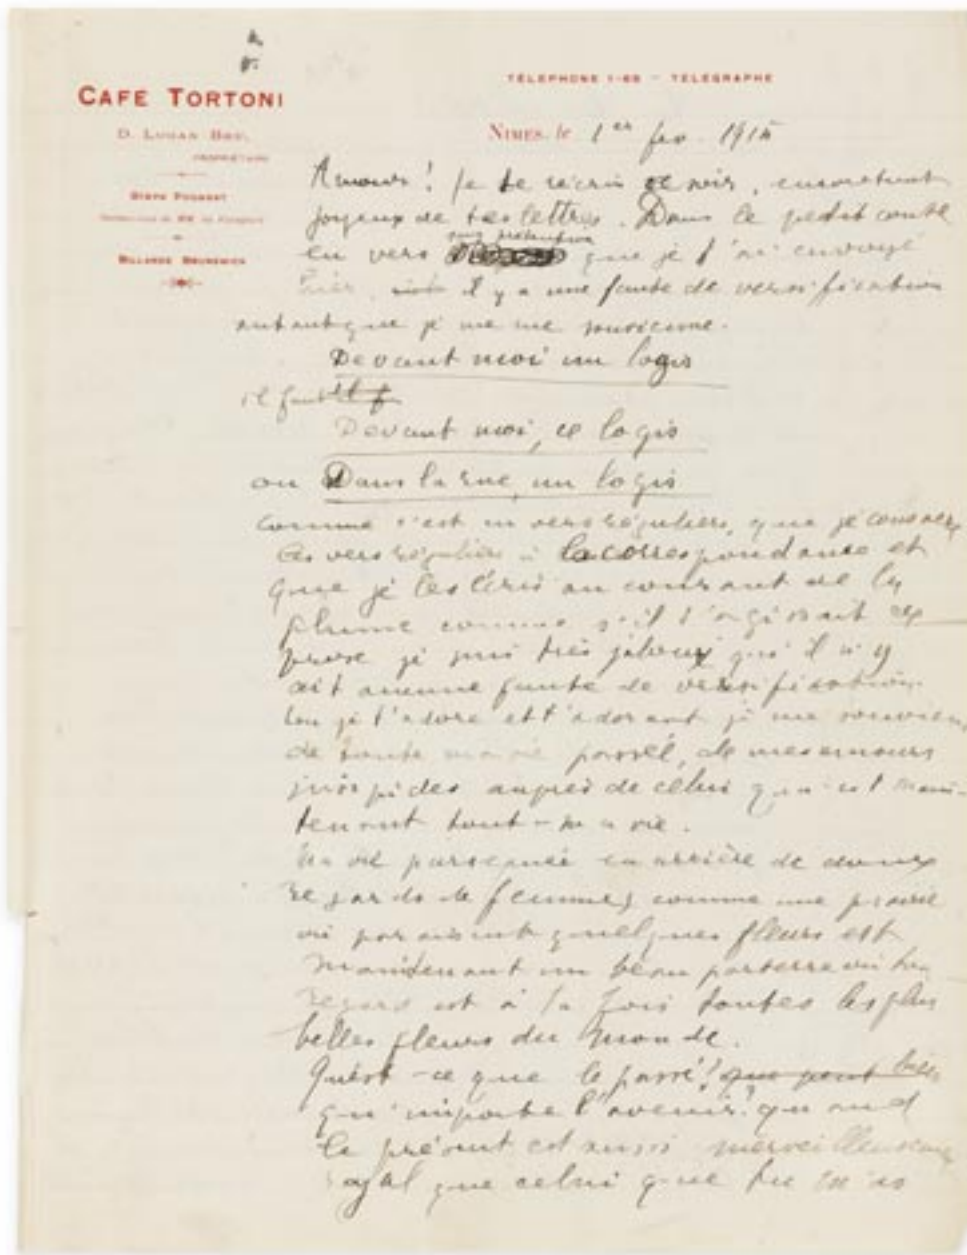 TÉLÉPHONE 1-68 — TÉLÉGRAPHE
CAFE TORTONI
PROPRIÉTAIRE
BILLARDS BRUNSWICK
NIMES, le 1er fev. 1915
Amour! Je te récris ce soir, en
joyeux de tes lettres. Dans le petit conte
sans prétention
en vers que je t'ai envoyé
hier, il y a une faute de versification
autant que je me me souvienne.
Devant moi un logis
il faut il f
Devant moi, ce logis
ou Dans la rue, un logis
Comme c'est en vers réguliers, que je consacre
les vers réguliers à la correspondance et
que je les écris au courant de la
plume comme s'il s'agissait de
prose je suis très jaloux qu'il n'y
ait aucune faute de versification.
Lou je t'adore et t'adorant je me souviens
de toute ma vie passée, de mes amours
insipides auprès de celui qui est main-
tenant toute ma vie.
Ma vie parsemée en arrière de doux
regards de femmes comme une prairie
où paraissent quelques fleurs est
maintenant un beau parterre où ton
regard est à la fois toutes les plus
belles fleurs du monde.
Qu'est-ce que le passé! que peut
qu'importe l'avenir? quand
le présent est aussi merveilleusement
royal que celui que tu m'as